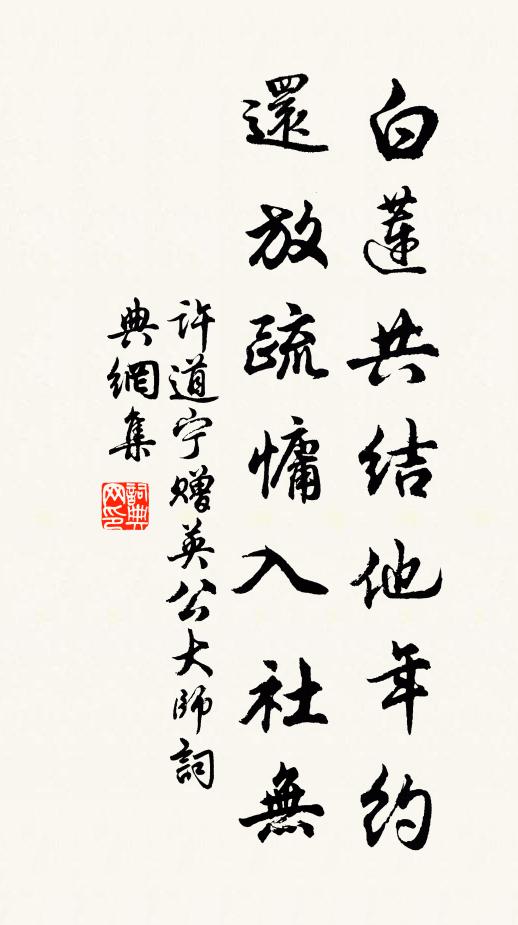 白蓮共結他年約
還放疏慵入社無
許道宁贈英公大師詞
典網集
詞典网印